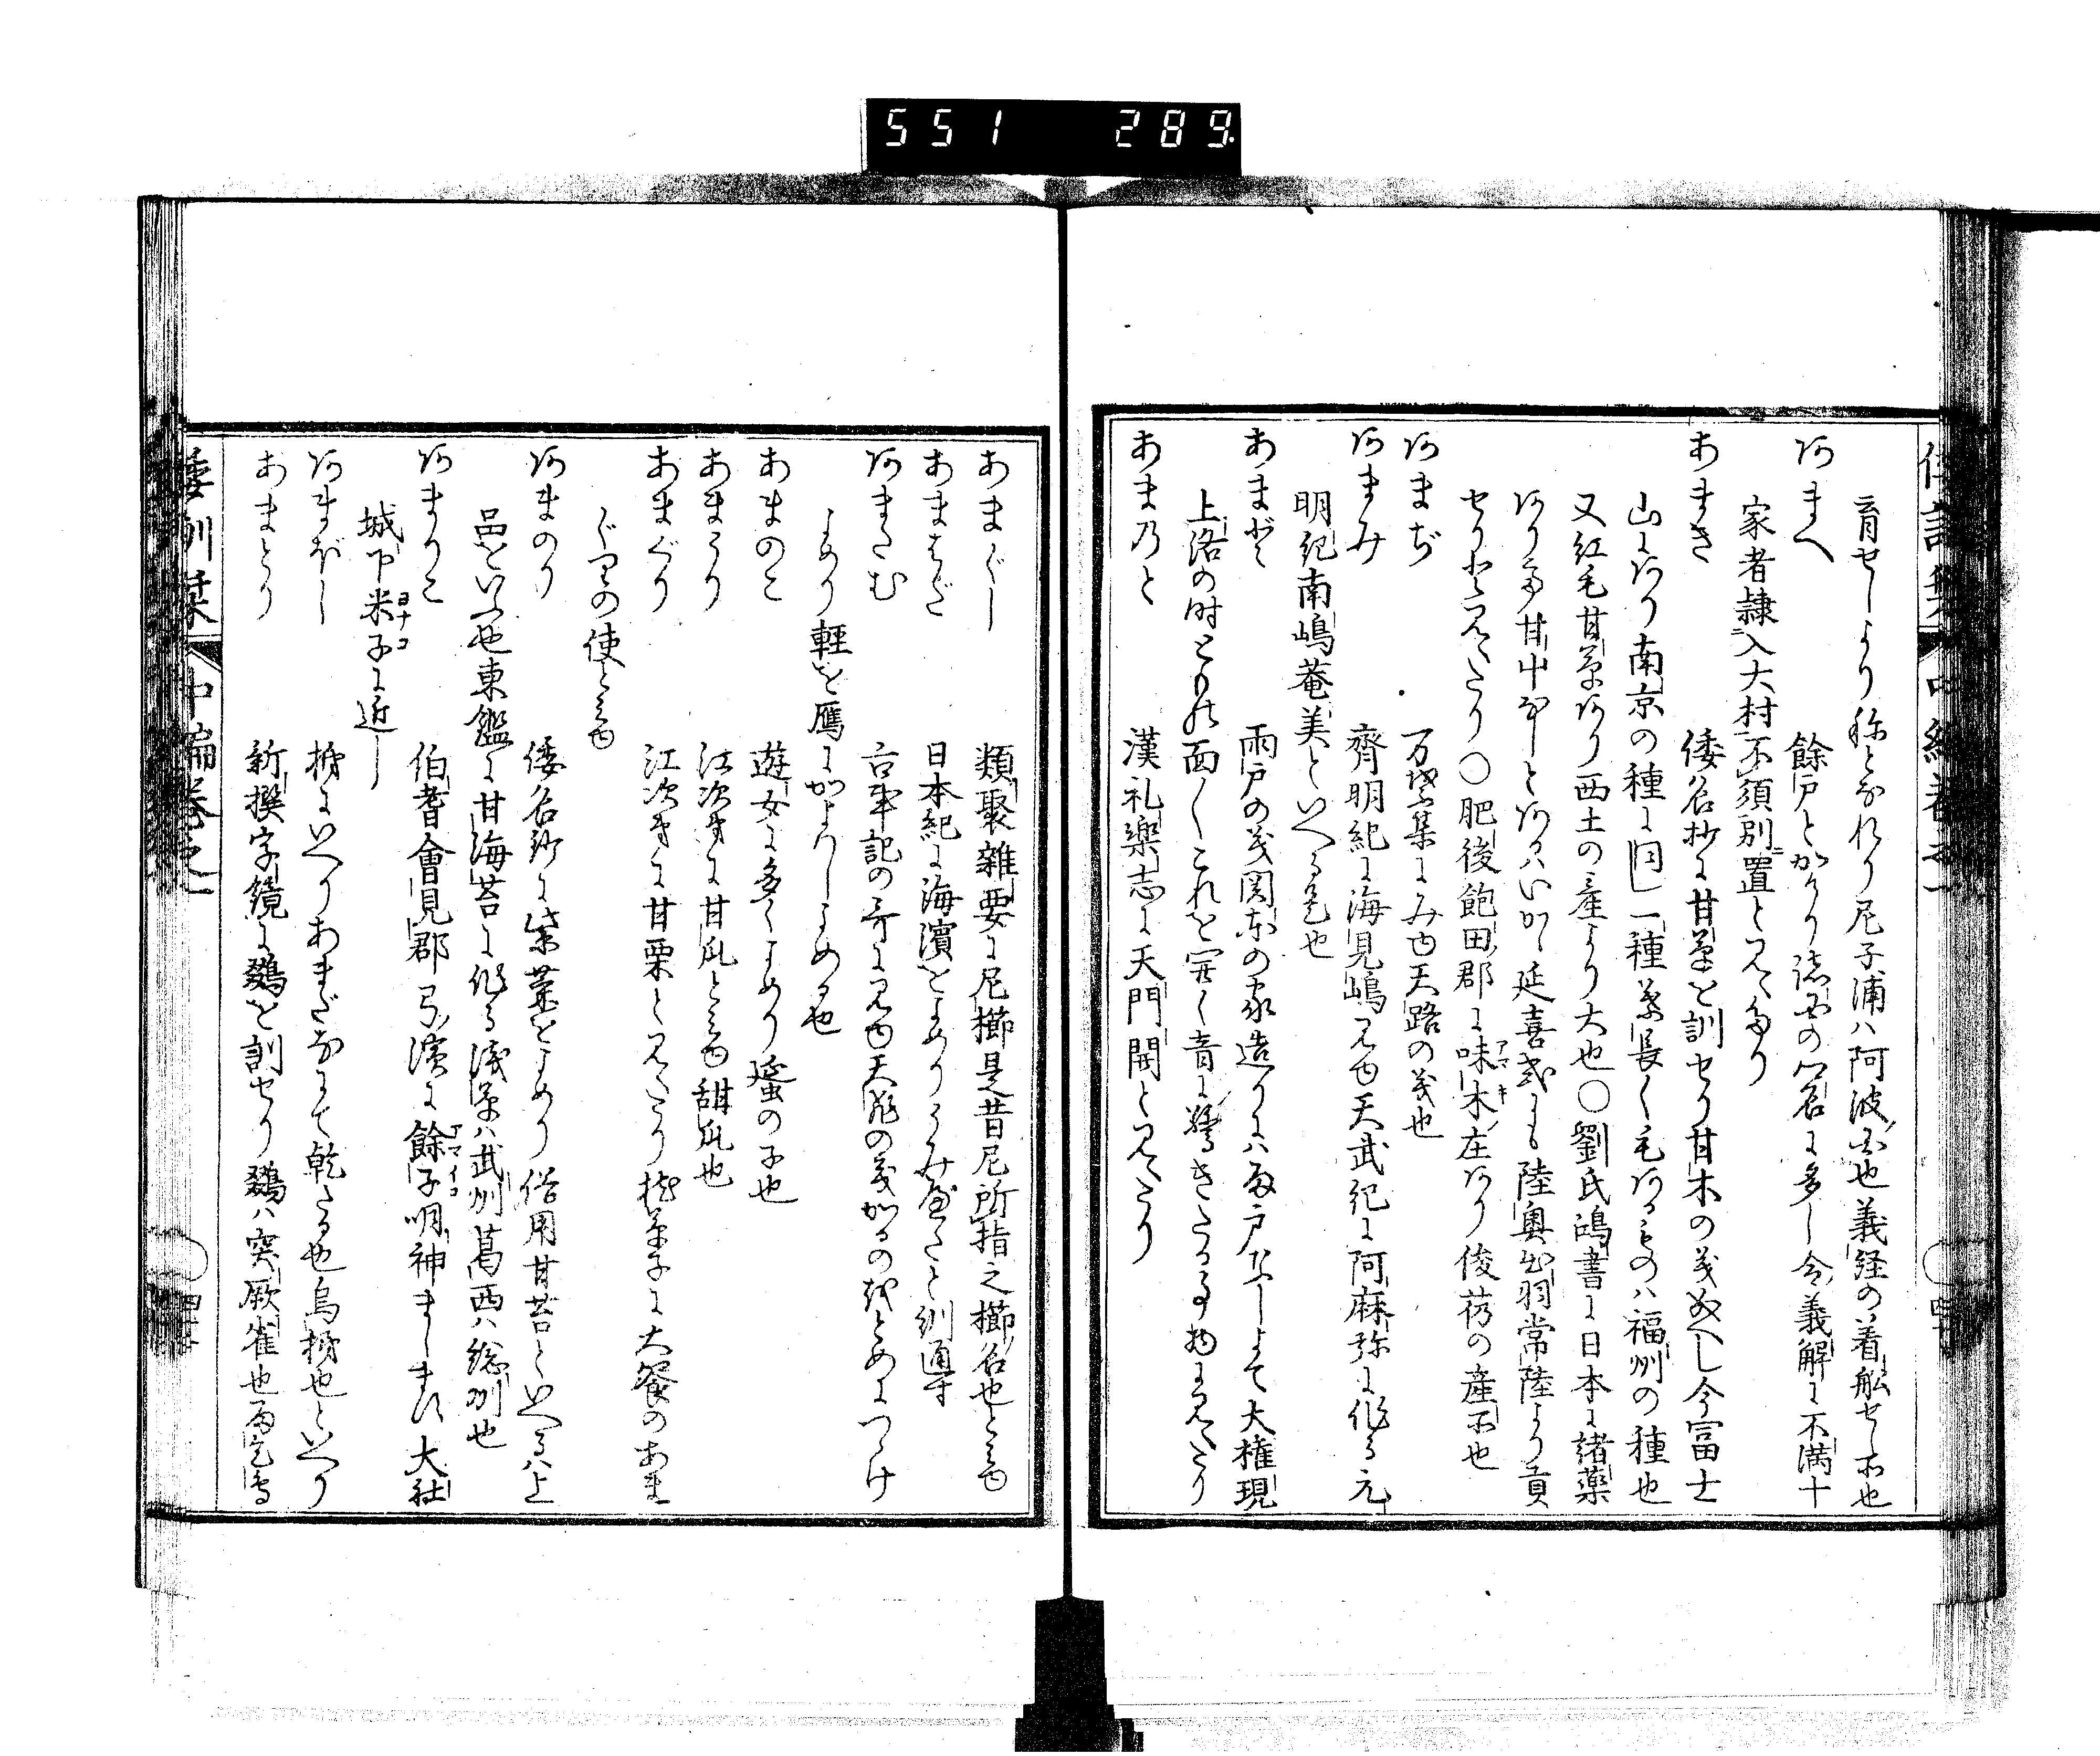 551 289
育せしより称となれり尼子浦ハ阿波国也義経の着舩せし所也
あまへ 餘戸とかけり諸国の名に多し令義解に不満十
家者隷入大村不須別置と見へたり
あまき 倭名抄に甘草を訓せり甘木の義なへし今富士
山にあり南京の種に同し一種葉長く毛あるものハ福州の種也
又紅毛甘草あり西土の産より大也〇劉氏鴻書に日本に諸薬
ありて甘艸なしとあるハいかゝ延喜式にも陸奥出羽常陸より貢
せりと見へたり〇肥後飽田郡に味木庄あり後荷の産所也
あまぢ 万葉集にみゆ天路の義也
あまみ 齊明紀に海見嶋見ゆ天武紀に阿麻弥に作る元
明紀南嶋菴美といへる是也
あまど 雨戸の義関東の家造りにハ雨戸なしよて大権現
上洛の時ともの面々これを開く音に驚きたる事物に見へたり
あま乃と 漢礼楽志に天門開と見へたり
あまぐし 類聚雑要に尼櫛是昔尼所指之櫛名也とみゆ
あまはだ 日本紀に海濱をよめりうみべたと訓通す
あまたむ 古事記の哥に見ゆ天飛の義かるの枕ことばにつゝけ
よめり軽を鴈にかよハしよめる也
あまのこ 遊女に多くよめり蜑の子也
あまうり 江次第に甘瓜とみゆ甜瓜也
あまぐり 江次第に甘栗と見へたり枕草子に大饗のあま
ぐりの使とみゆ
あまのり 倭名鈔に紫菜をよめり俗用甘苔といへるハ上
品をいふ也東鑑に甘海苔に作る浅草ハ武州葛西ハ総州也
あまりこ 伯耆會見郡弓濱に餘子明神まします大社
アマイコ
城下米子に近し
ヨナコ
あまぼし 楴にいへりあまだなにて乾たる也烏楴也といへり
あまとり 新撰字鏡に鵽を訓せり鵽ハ突厥雀也雨乞鳥
倭訓栞 中編巻之一